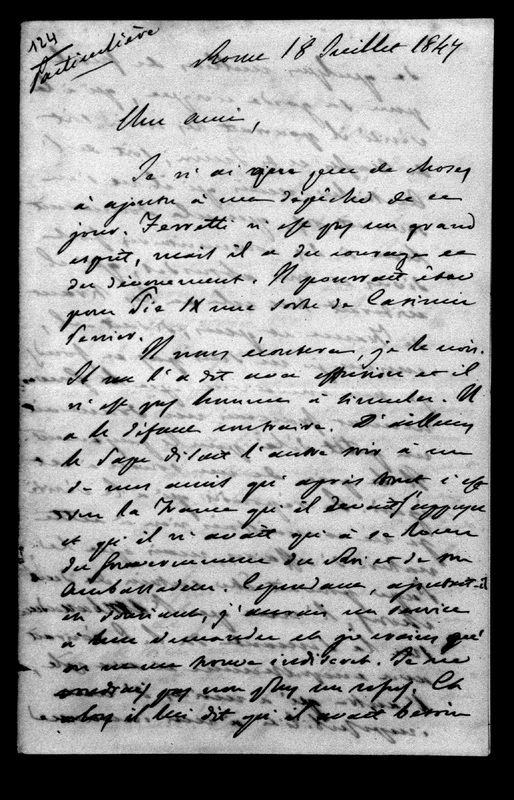 124
Particulière
Rome 18 Juillet 1847
Mon ami,
Je n'ai que peu de choses
à ajouter à ma dépêche de ce
jour. Ferretti n'est pas un grand
esprit, mais il a du courage et
du dévouement. Il pourrait être
pour Pie IX une sorte de Casimir
Perier.
Il nous écoutera, je le crois.
Il me l'a dit avec effusion et il
n'est pas homme à simuler. Il
a le défaut contraire. D'ailleurs
le Pape disait l'autre soir à un
de mes amis qu'après tout c'est
sur la France qu'il devait s'appuyer
et qu'il n'avait qu'à se louer
du Gouvernement du Roi et de son
Ambassadeur. Cependant, ajoutait-il
en souriant, j'aurais un service
à leur demander et je crains qu'
on ne me trouve indiscret. Je ne
voudrais pas non plus un refus. Et
alors il lui dit qu'il avait besoin